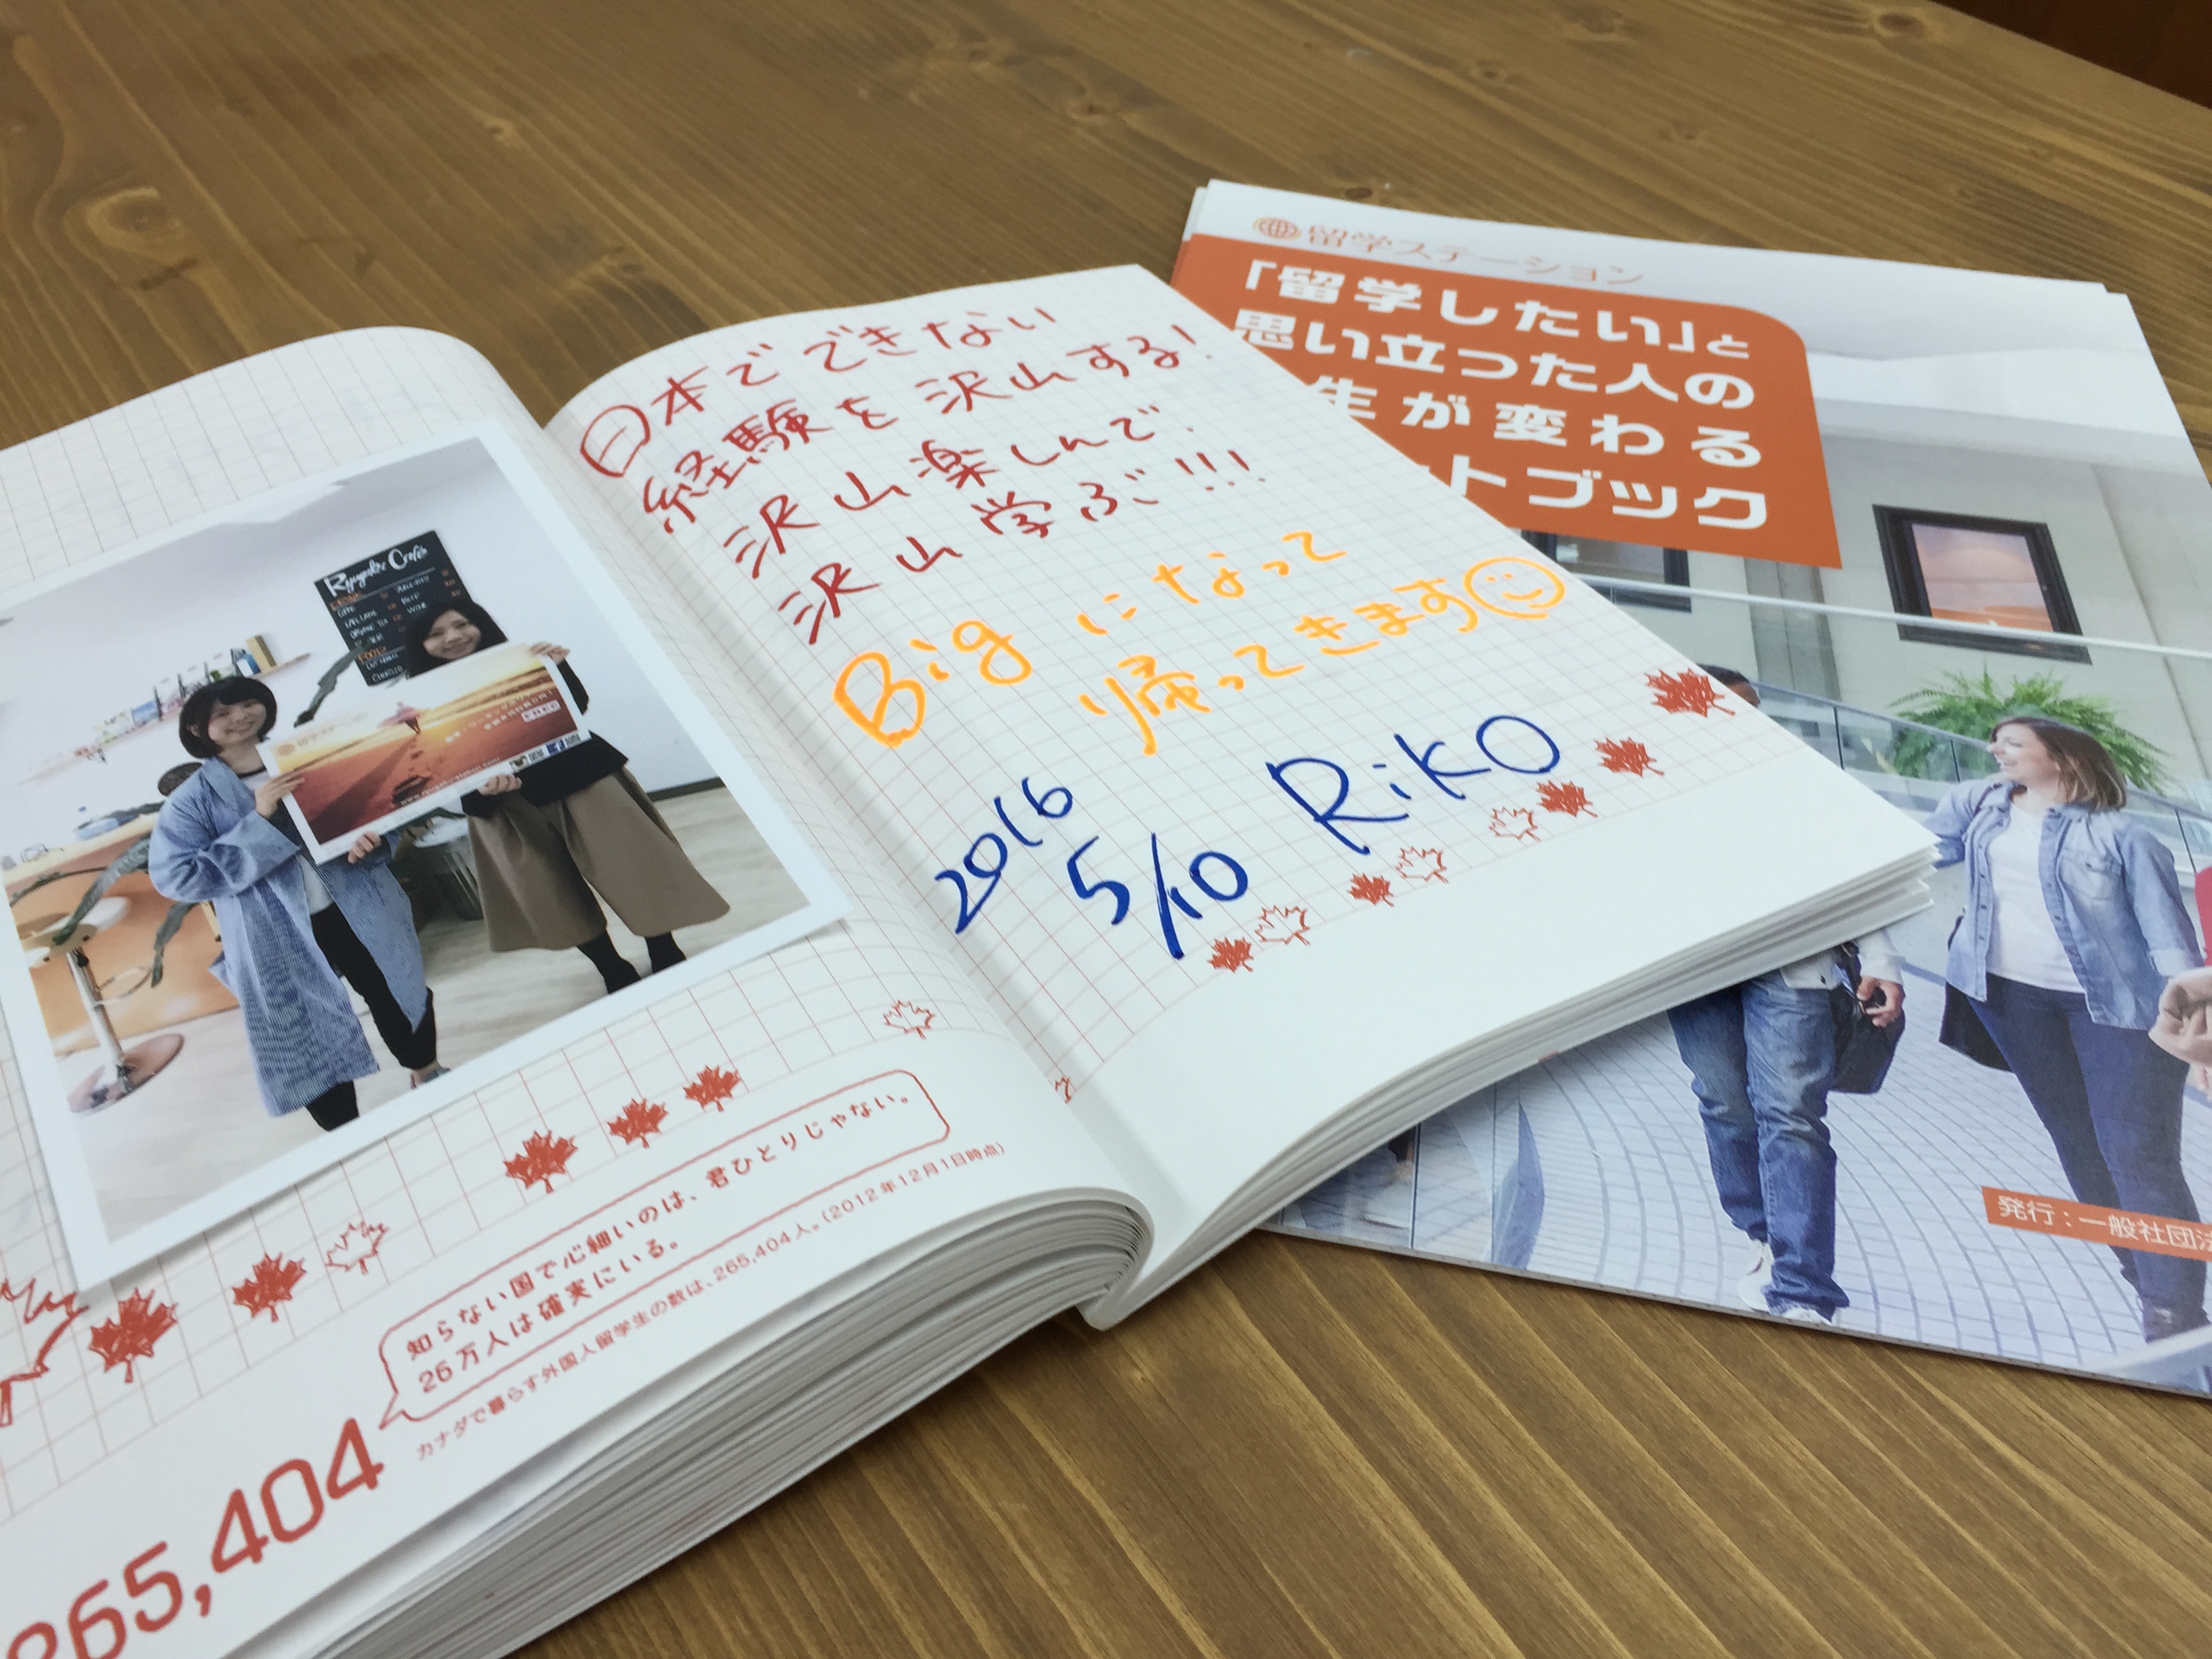 日本でできない
経験を沢山する!
沢山楽しんで.
沢山学ぶ!!!
Bigになって
帰ってきます
2016
5/10 RiKO
Ryugaku Café
知らない国で心細いのは、君ひとりじゃない。
26万人は確実にいる。
カナダで暮らす外国人留学生の数は、265,404人。(2012年12月1日時点)
265,404
留学ステーション
「留学したい」と
思い立った人の
生が変わる
トブック
発行:一般社団法